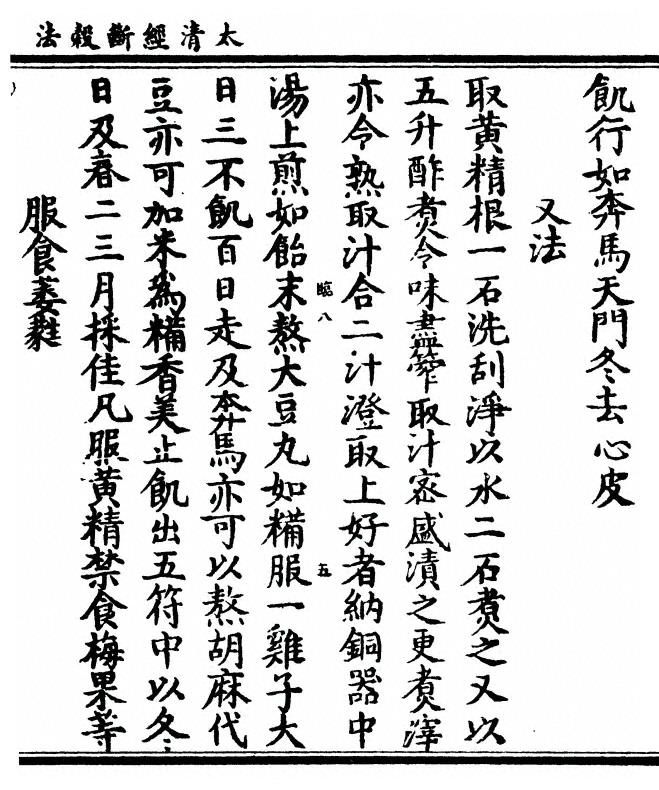 太清經斷穀法
飢行如奔馬天門冬去心皮
又法
取黃精根一石洗刮淨以水二石煮之又以
五升酢煮令味盡管取汁密盛漬之更煮滓
亦令熟取汁合二汁澄取上好者納銅器中
湯上煎如飴末熬大豆丸如糒服一雞子大
臨八
五
日三不飢百日走及奔馬亦可以熬胡麻代
豆亦可加米為糒香美止飢出五符中以冬
日及春二三月採佳凡服黃精禁食梅果等
服食萎蕤